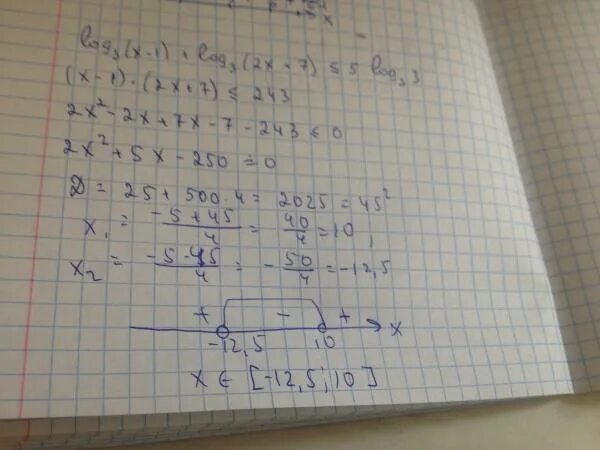 x
log₃(x-1) + log₃(2x+7) ≤ 5 log₃3
(x-1)·(2x+7) ≤ 243
2x²-2x+7x-7-243≤0
2x²+5x-250=0
D = 25+500·4= 2025=45²
x₁ = (-5+45)/4 = 40/4 =10,
x₂ = (-5-45)/4 = -50/4 =-12,5
+ - + x
-12,5 10
x ∈ [-12,5; 10]